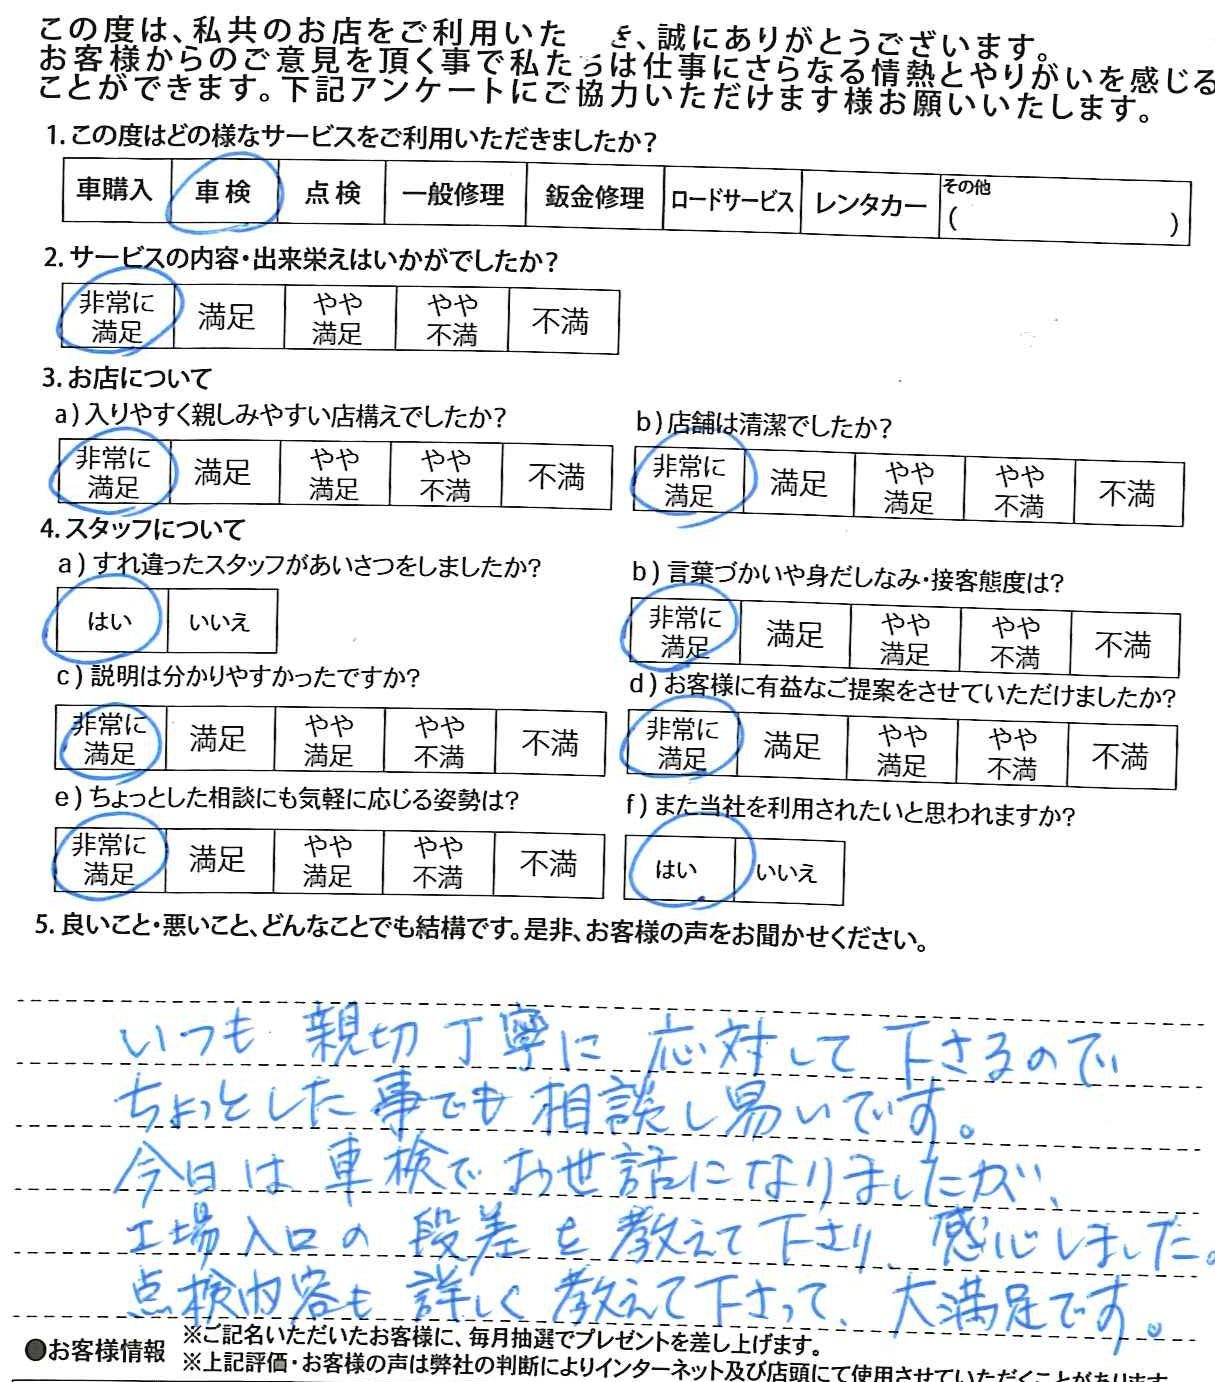 この度は、私共のお店をご利用いた き、誠にありがとうございます。
お客様からのご意見を頂く事で私たちは仕事にさらなる情熱とやりがいを感じる
ことができます。下記アンケートにご協力いただけます様お願いいたします。
1. この度はどの様なサービスをご利用いただきましたか?
車購入 車検 点検 一般修理 鈑金修理 ロードサービス レンタカー その他 ( )
2. サービスの内容・出来栄えはいかがでしたか?
非常に満足 満足 やや満足 やや不満 不満
3. お店について
a) 入りやすく親しみやすい店構えでしたか?
非常に満足 満足 やや満足 やや不満 不満
b) 店舗は清潔でしたか?
非常に満足 満足 やや満足 やや不満 不満
4. スタッフについて
a) すれ違ったスタッフがあいさつをしましたか?
はい いいえ
b) 言葉づかいや身だしなみ・接客態度は?
非常に満足 満足 やや満足 やや不満 不満
c) 説明は分かりやすかったですか?
非常に満足 満足 やや満足 やや不満 不満
d) お客様に有益なご提案をさせていただけましたか?
非常に満足 満足 やや満足 やや不満 不満
e) ちょっとした相談にも気軽に応じる姿勢は?
非常に満足 満足 やや満足 やや不満 不満
f) また当社を利用されたいと思われますか?
はい いいえ
5. 良いこと・悪いこと、どんなことでも結構です。是非、お客様の声をお聞かせください。
いつも 親切丁寧に 応対して下さるので
ちょっとした事でも相談し易いです。
今日は車検でお世話になりましたが、
工場入口の段差を教えて下さり、感心しました。
点検内容も詳しく教えて下さって、大満足です。
●お客様情報
※ご記名いただいたお客様に、毎月抽選でプレゼントを差し上げます。
※上記評価・お客様の声は弊社の判断によりインターネット及び店頭にて使用させていただくことがあります